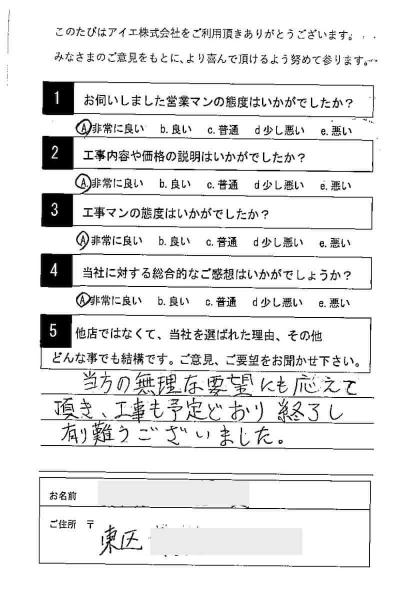 このたびはアイエ株式会社をご利用頂きありがとうございます。
みなさまのご意見をもとに、より喜んで頂けるよう努めて参ります。
1 お伺いしました営業マンの態度はいかがでしたか？
A非常に良い b.良い c.普通 d少し悪い e.悪い
2 工事内容や価格の説明はいかがでしたか？
A非常に良い b.良い c.普通 d少し悪い e.悪い
3 工事マンの態度はいかがでしたか？
A非常に良い b.良い c.普通 d少し悪い e.悪い
4 当社に対する総合的なご感想はいかがでしょうか？
A非常に良い b.良い c.普通 d少し悪い e.悪い
5 他店ではなくて、当社を選ばれた理由、その他
どんな事でも結構です。ご意見、ご要望をお聞かせ下さい。
当方の無理な要望にも応えて
頂き、工事も予定どおり終了し
有難うございました。
お名前
ご住所 〒
東区